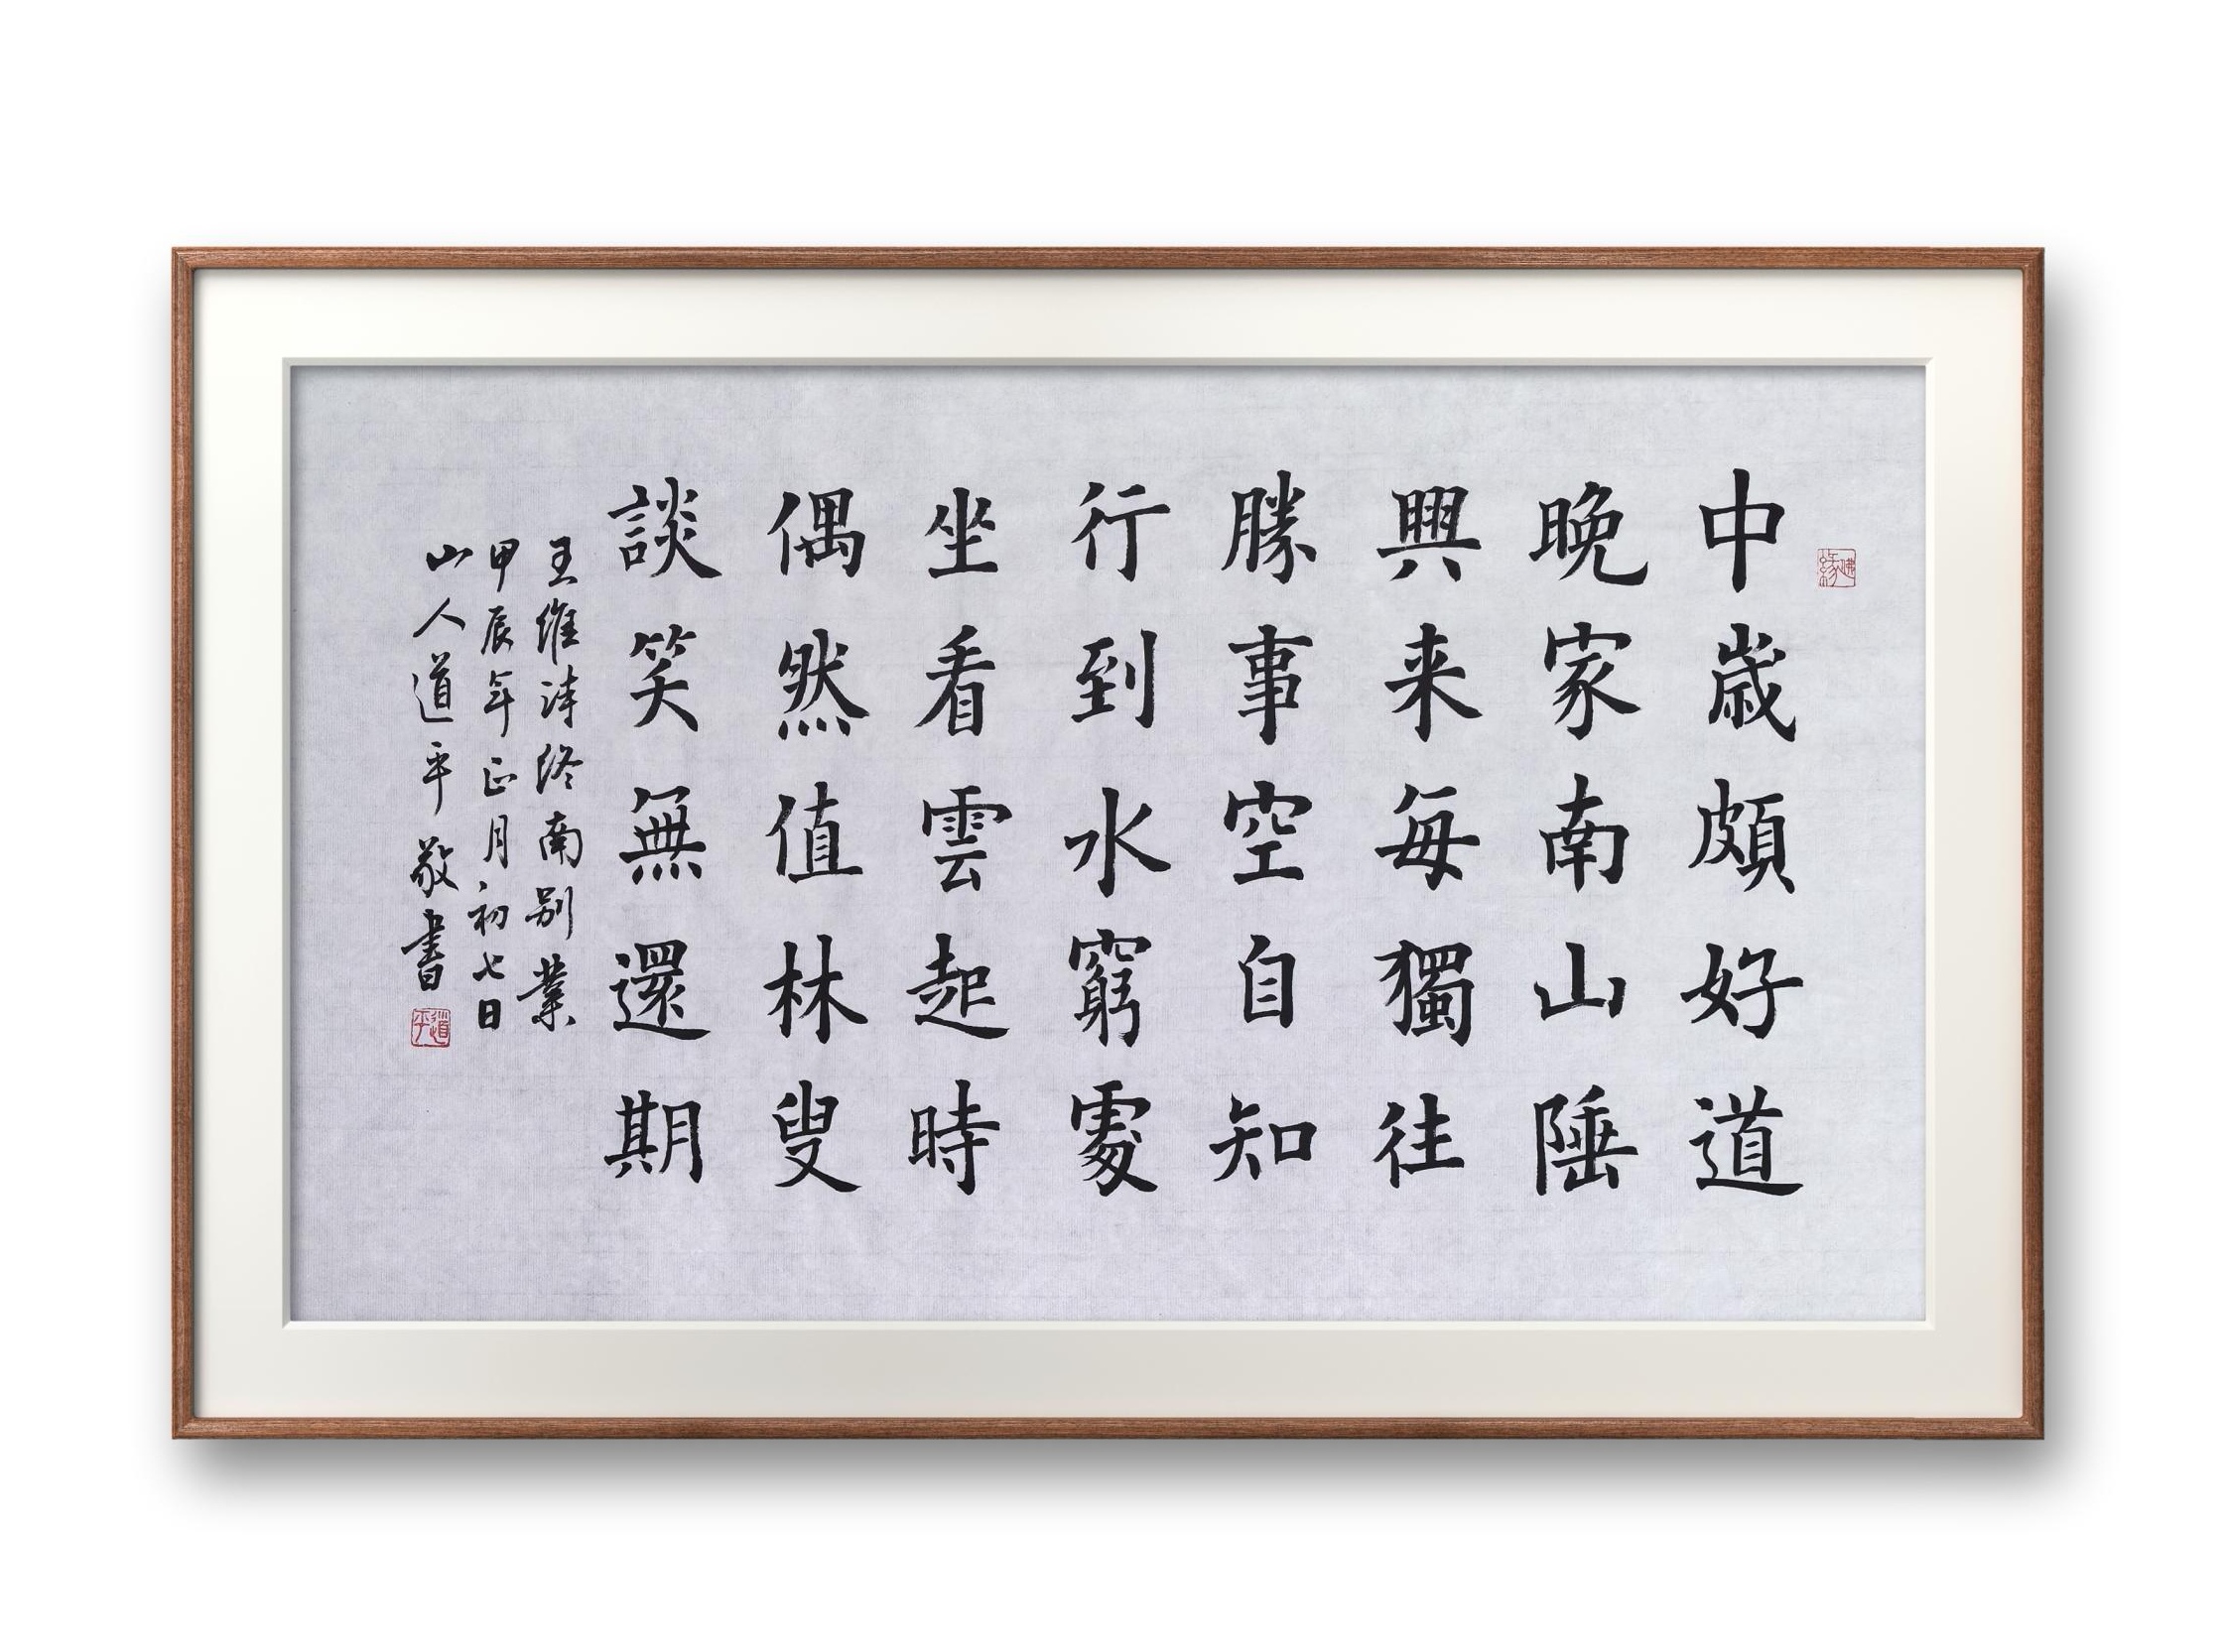 佛緣
中歲頗好道
晚家南山陲
興来每獨往
勝事空自知
行到水窮處
坐看雲起時
偶然值林叟
談笑無還期
王維詩終南别業
甲辰年正月初七日
山人道平敬書
道平